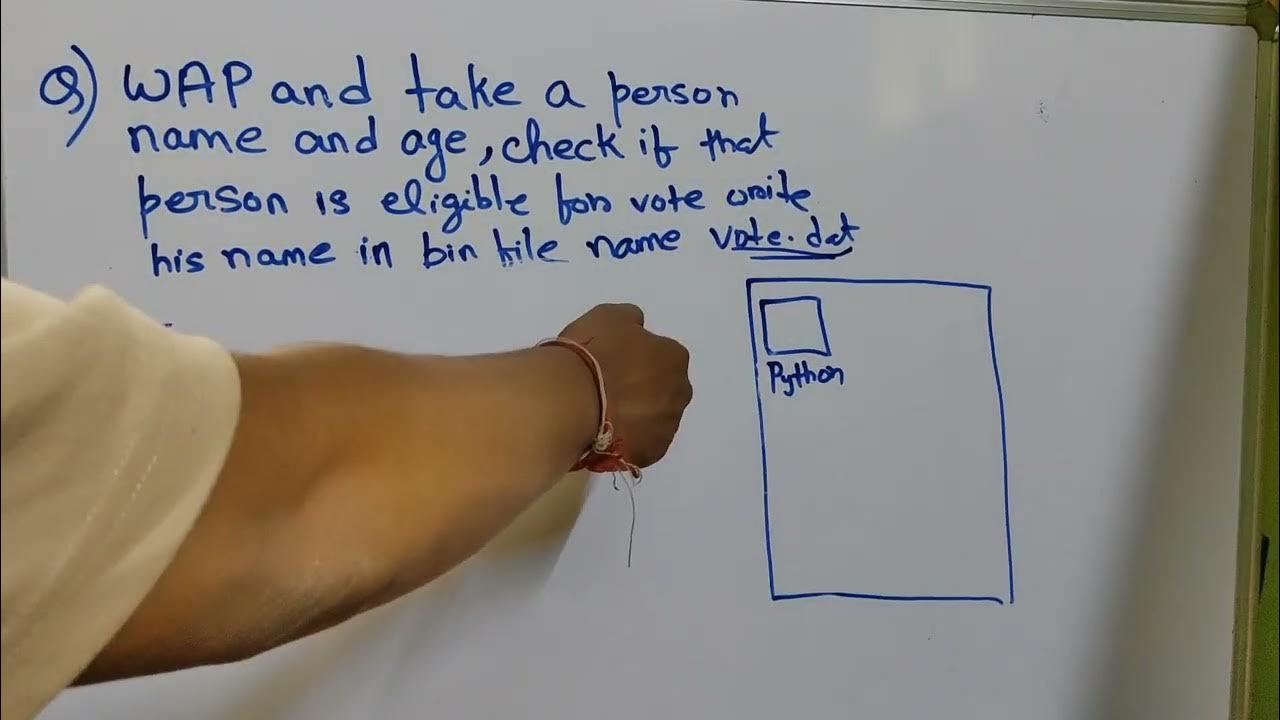 Q) WAP and take a person
name and age, check if that
person is eligible for vote write
his name in bin file name vote.dat
Python